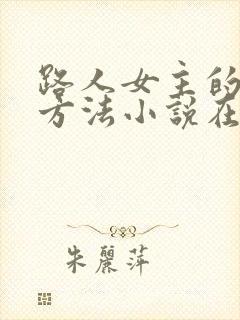 路人女主的
方法小説在
朱麗萍